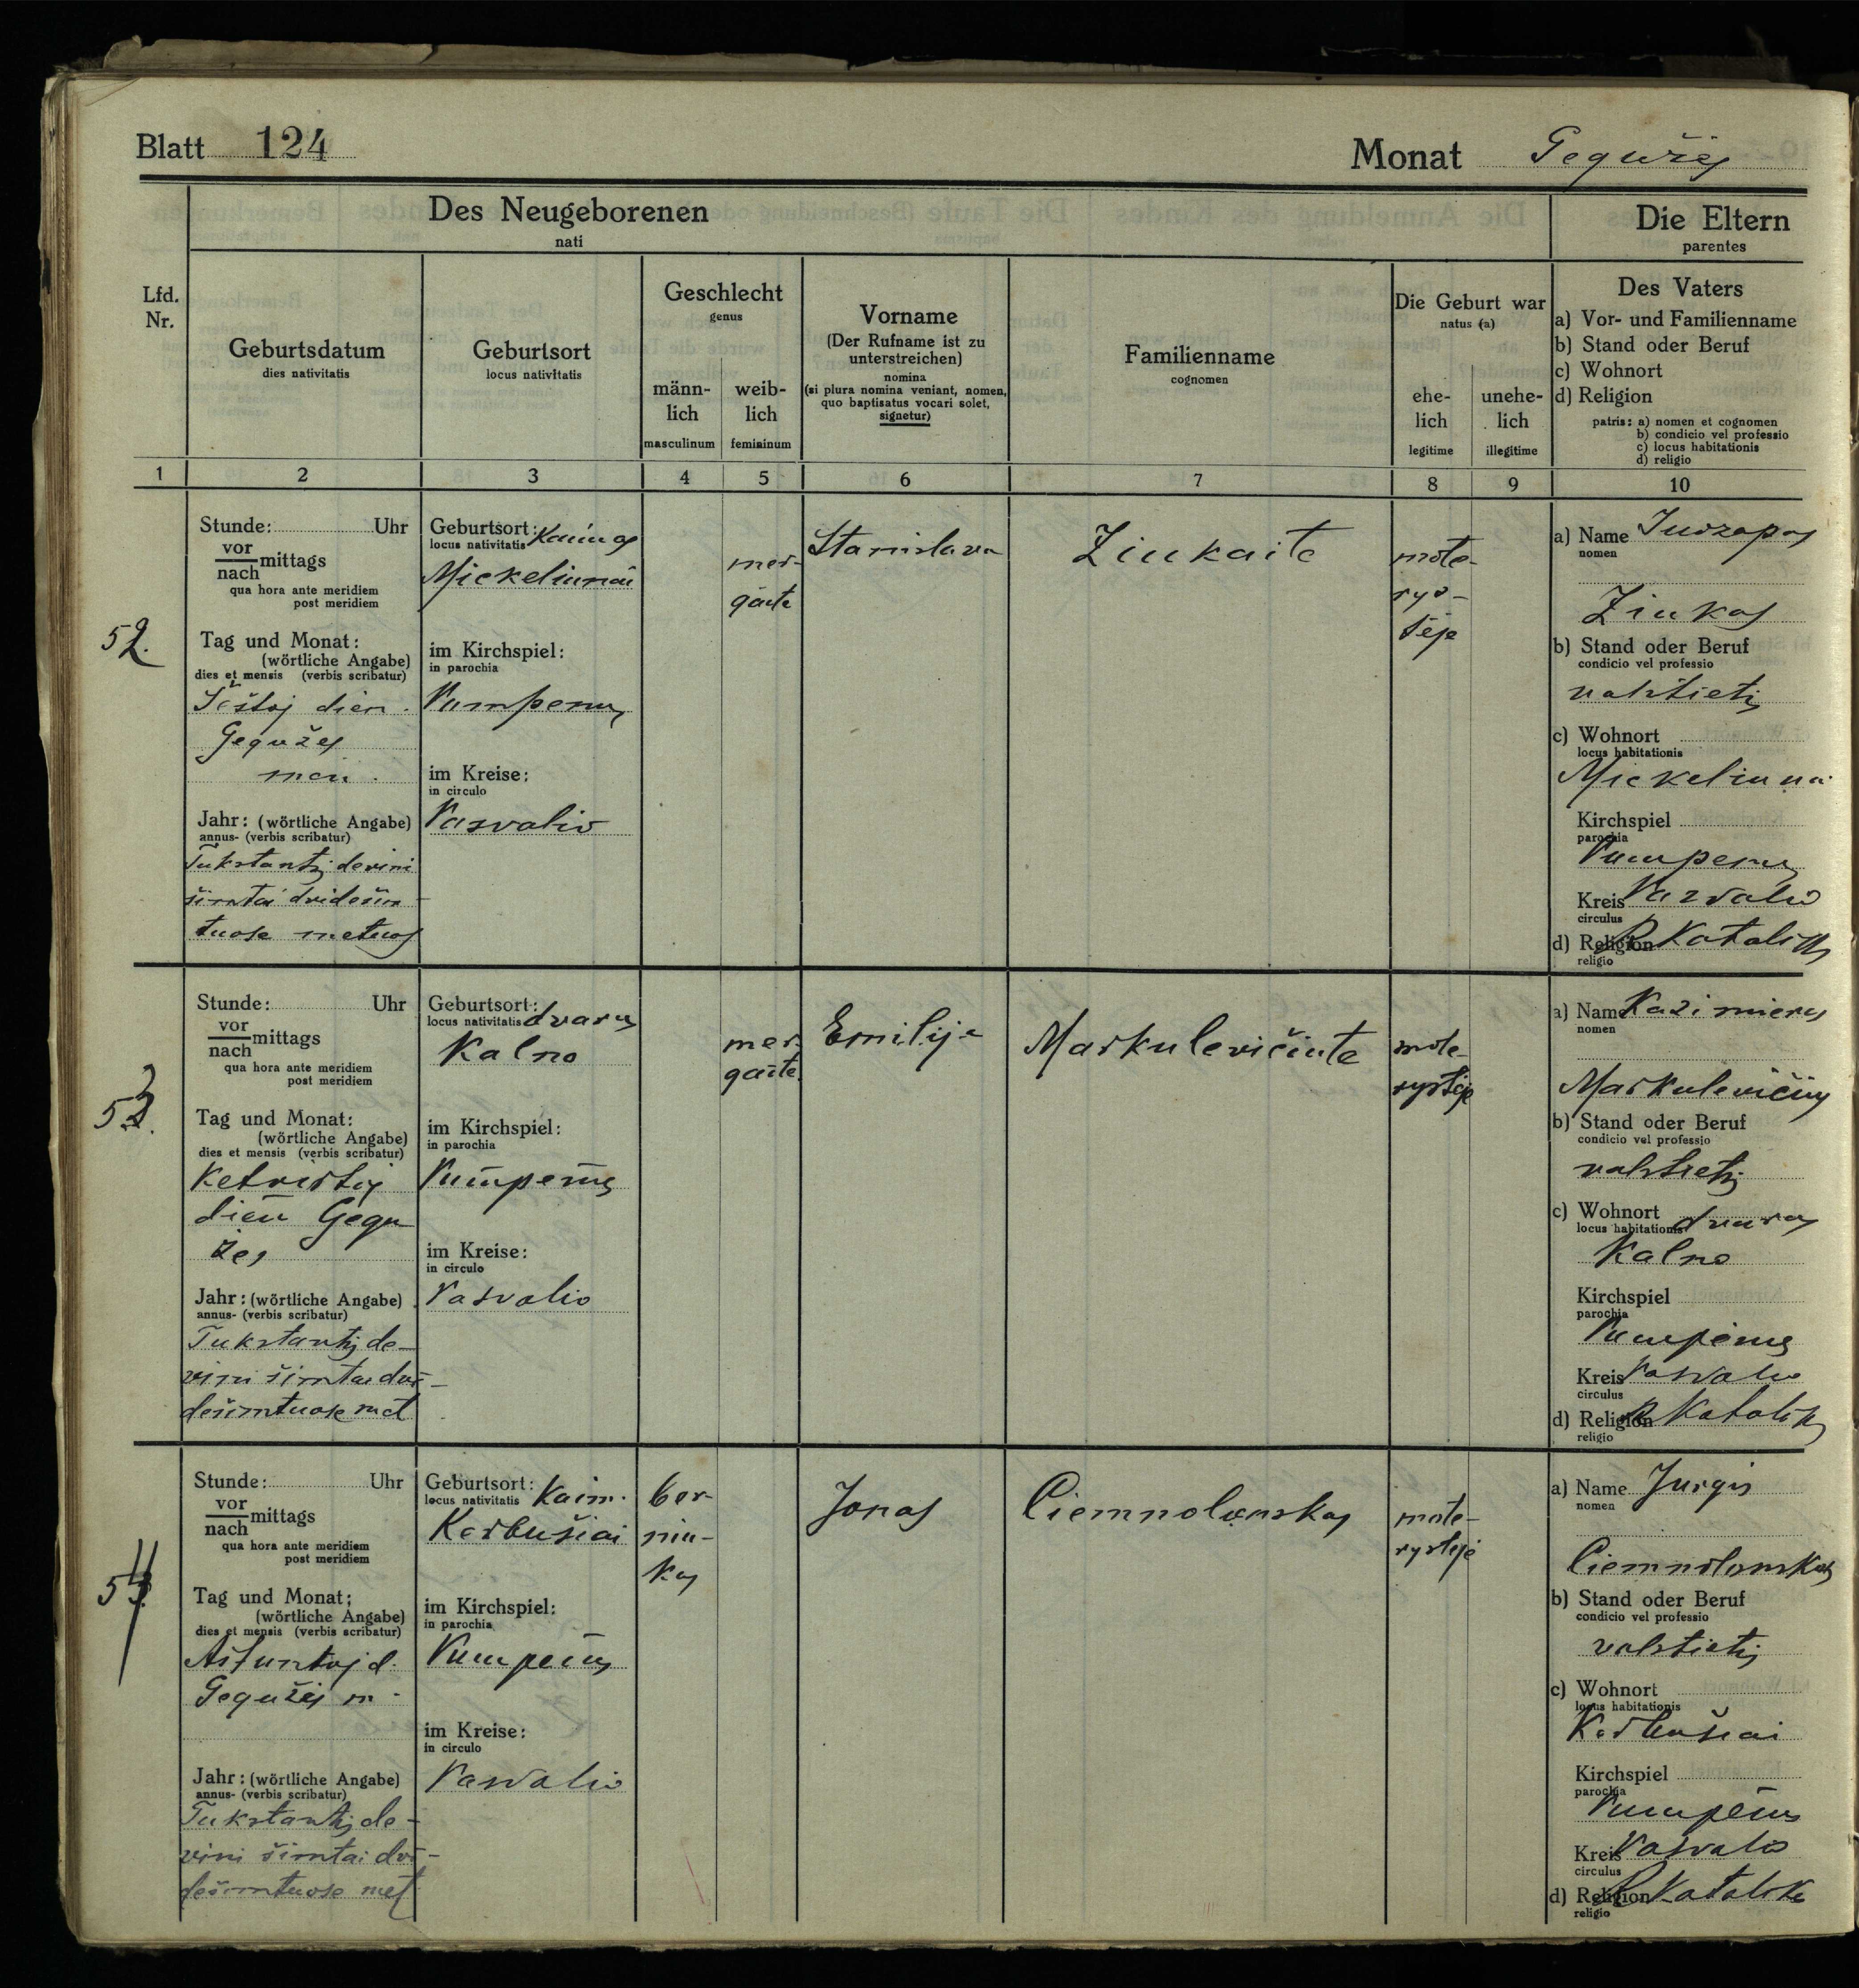 Blatt 124
Monat Gegužės
Des Neugeborenen
nati
Die Eltern
parentes
Lfd.
Nr.
Geburtsdatum
dies nativitatis
Geburtsort
locus nativitatis
Geschlecht
genus
männ-
lich
masculinum
weib-
lich
femininum
Vorname
(Der Rufname ist zu
unterstreichen)
nomina
(si plura nomina veniant, nomen,
quo baptisatus vocari solet,
signetur)
Familienname
cognomen
Die Geburt war
natus (a)
ehe-
lich
legitime
unehe-
lich
illegitime
Des Vaters
a) Vor- und Familienname
b) Stand oder Beruf
c) Wohnort
d) Religion
patris: a) nomen et cognomen
b) condicio vel professio
c) locus habitationis
d) religio
1 2 3 4 5 6 7 8 9 10
52.
Stunde: Uhr
vor
nach mittags
qua hora ante meridiem
post meridiem
Tag und Monat:
(wörtliche Angabe)
dies et mensis (verbis scribatur)
Šeštoj dien.
Gegužes
mėn.
Jahr: (wörtliche Angabe)
annus- (verbis scribatur)
Tukstantį devini
šimtai dvidešim-
tuose metuos
Geburtsort: Kaimas
locus nativitatis
Mickeliunai
im Kirchspiel:
in parochia
Pumpenų
im Kreise:
in circulo
Pasvalio
mer-
gaitė
Stanislava
Ziukaite
mote-
rys-
tėje
a) Name Juozapas
nomen
Ziukas
b) Stand oder Beruf
condicio vel professio
valstietis
c) Wohnort
locus habitationis
Mickeliunai
Kirchspiel
parochia
Pumpenų
Kreis Pasvalio
circulus
d) Religion R Katalikas
religio
53.
Stunde: Uhr
vor
nach mittags
qua hora ante meridiem
post meridiem
Tag und Monat:
(wörtliche Angabe)
dies et mensis (verbis scribatur)
Ketvirtoj
dien Gegu
žes
Jahr: (wörtliche Angabe)
annus- (verbis scribatur)
Tukstantį de-
vini šimtai dvi-
dešimtuose met
Geburtsort: dvaras
locus nativitatis
Kalno
im Kirchspiel:
in parochia
Pumpenų
im Kreise:
in circulo
Pasvalio
mer-
gaitė
Emilija
Markulevičiute
mote-
rystėje
a) Name Kazimieras
nomen
Markulevičius
b) Stand oder Beruf
condicio vel professio
valstietis
c) Wohnort
locus habitationis dvaras
Kalno
Kirchspiel
parochia
Pumpenų
Kreis Pasvalio
circulus
d) Religion R Katalikas
religio
54.
Stunde: Uhr
vor
nach mittags
qua hora ante meridiem
post meridiem
Tag und Monat:
(wörtliche Angabe)
dies et mensis (verbis scribatur)
Aštuntoj d.
Gegužės m.
Jahr: (wörtliche Angabe)
annus- (verbis scribatur)
Tukstantį de-
vini šimtai dvi-
dešimtuose met
Geburtsort: Kaim.
locus nativitatis
Kerbušiai
im Kirchspiel:
in parochia
Pumpenų
im Kreise:
in circulo
Pasvalio
ber-
niu-
kas
Jonas
Ciemnolonskas
mote-
rystėje
a) Name Jurgis
nomen
Ciemnolonskas
b) Stand oder Beruf
condicio vel professio
valstietis
c) Wohnort
locus habitationis
Kerbušiai
Kirchspiel
parochia
Pumpenų
Kreis Pasvalio
circulus
d) Religion R Katalik
religio